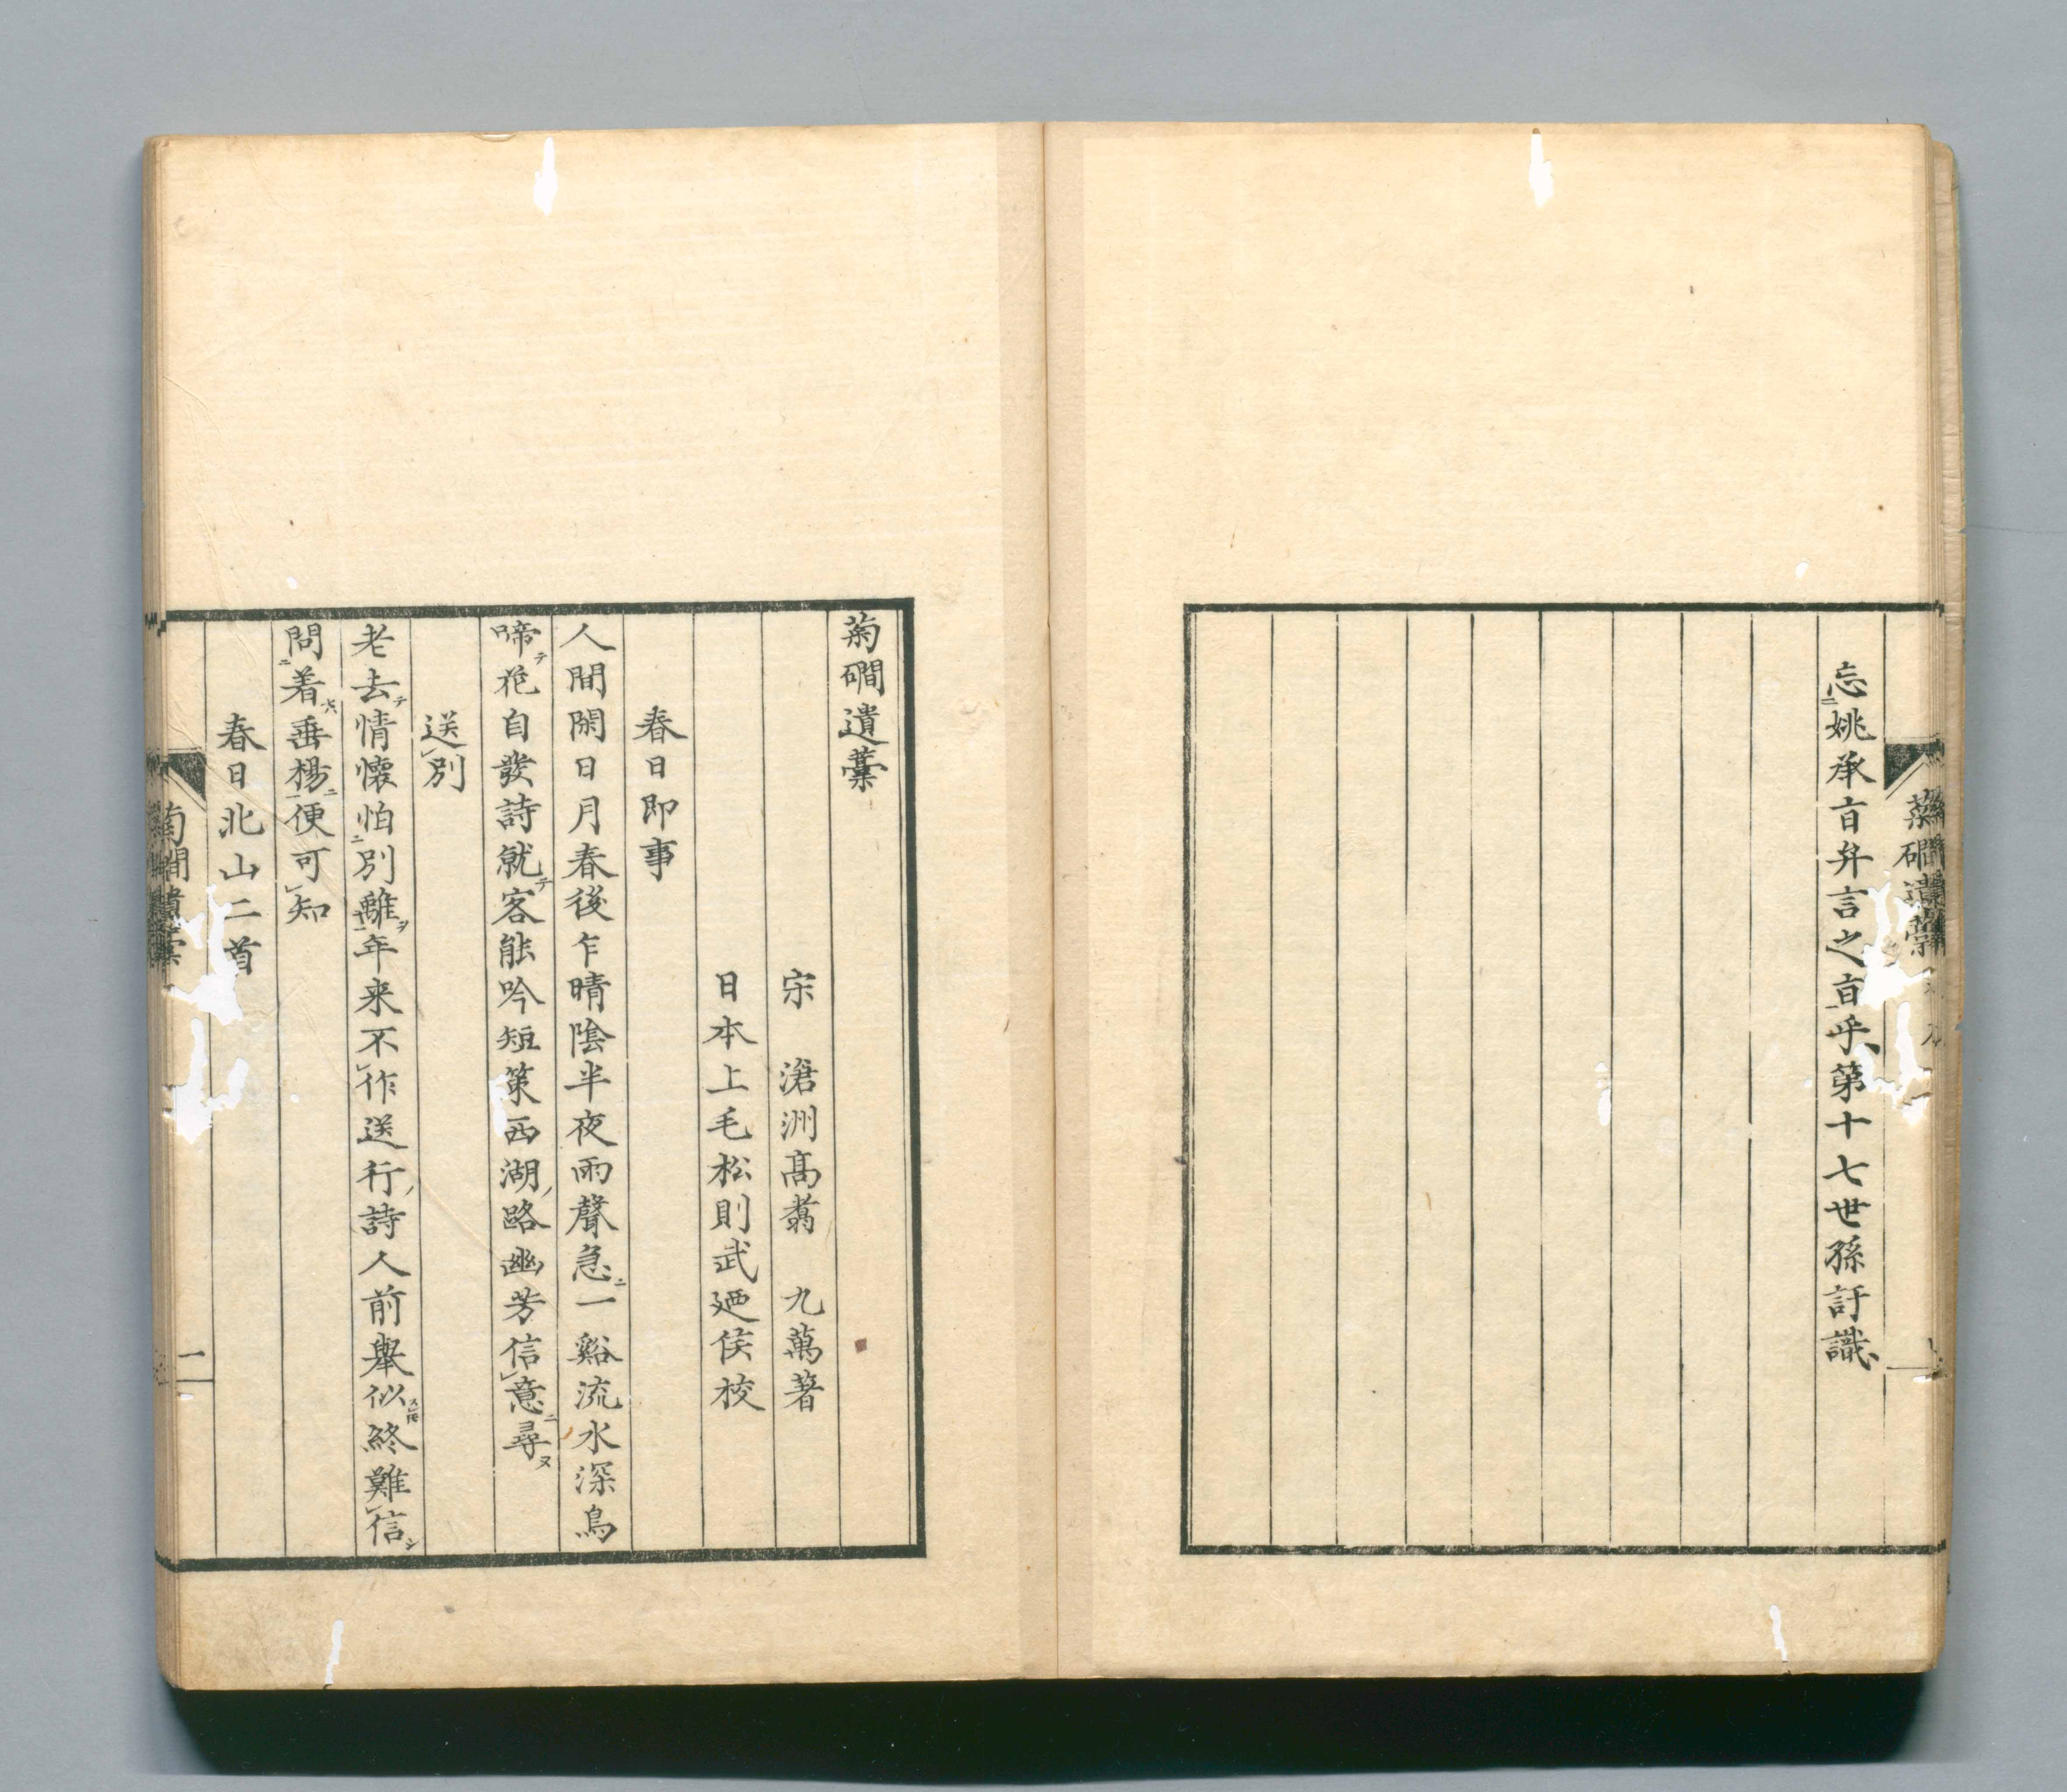 忘姚承㫖弁言之㫖乎第十七世孫訏識
菊磵遺藁
宋　滄洲髙翥　九萬著
日本上毛松則武廼侯校
春日即事
人間閑日月春後乍晴陰半夜雨聲急ニ一谿流水深鳥
啼テ花自發詩就テ客能吟短策西湖路幽芳信意ニ尋ヌ
送別
老去テ情懷怕ニ別離ヲ一年来不作送行詩人前舉似終難信シ
問ニ着垂楊ニ一便可知
春日北山二首
一